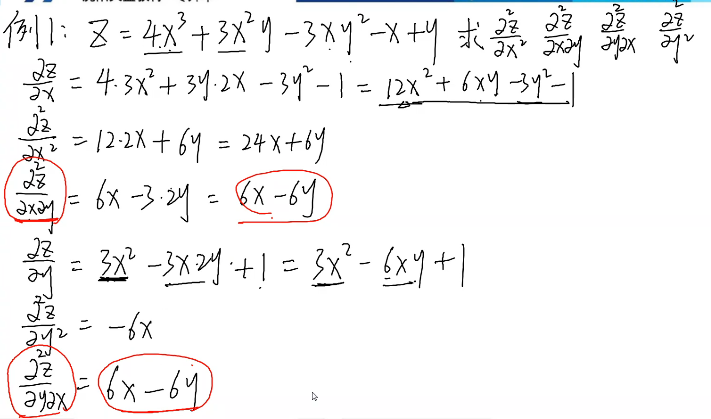 例1: Z = 4x³ + 3x²y - 3xy² - x + y 求 ∂²z/∂x² ∂²z/∂x∂y ∂²z/∂y∂x ∂²z/∂y²
∂z/∂x = 4·3x² + 3y·2x - 3y² - 1 = 12x² + 6xy - 3y² - 1
∂²z/∂x² = 12·2x + 6y = 24x + 6y
∂²z/∂x∂y = 6x - 3·2y = 6x - 6y
∂z/∂y = 3x² - 3x·2y + 1 = 3x² - 6xy + 1
∂²z/∂y² = -6x
∂²z/∂y∂x = 6x - 6y